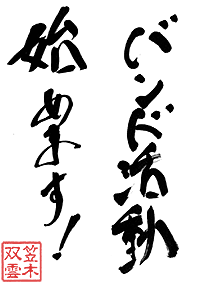 バンド活動
始めます!
笠木
双雲